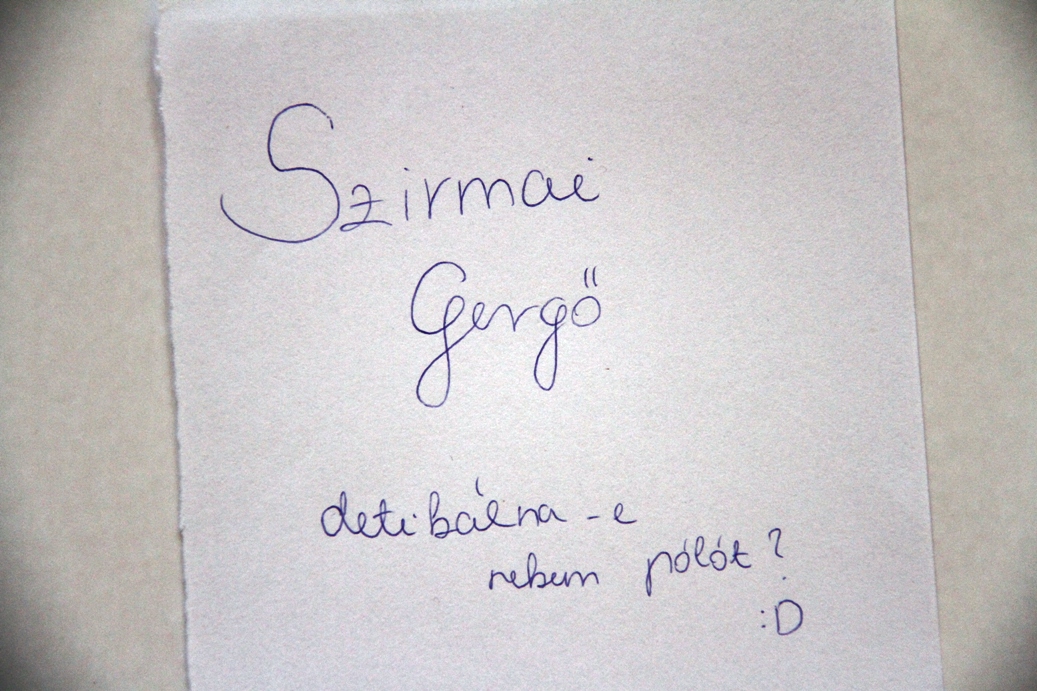 Szirmai
Gergő
dedikálna-e
nekem pólót?
:D